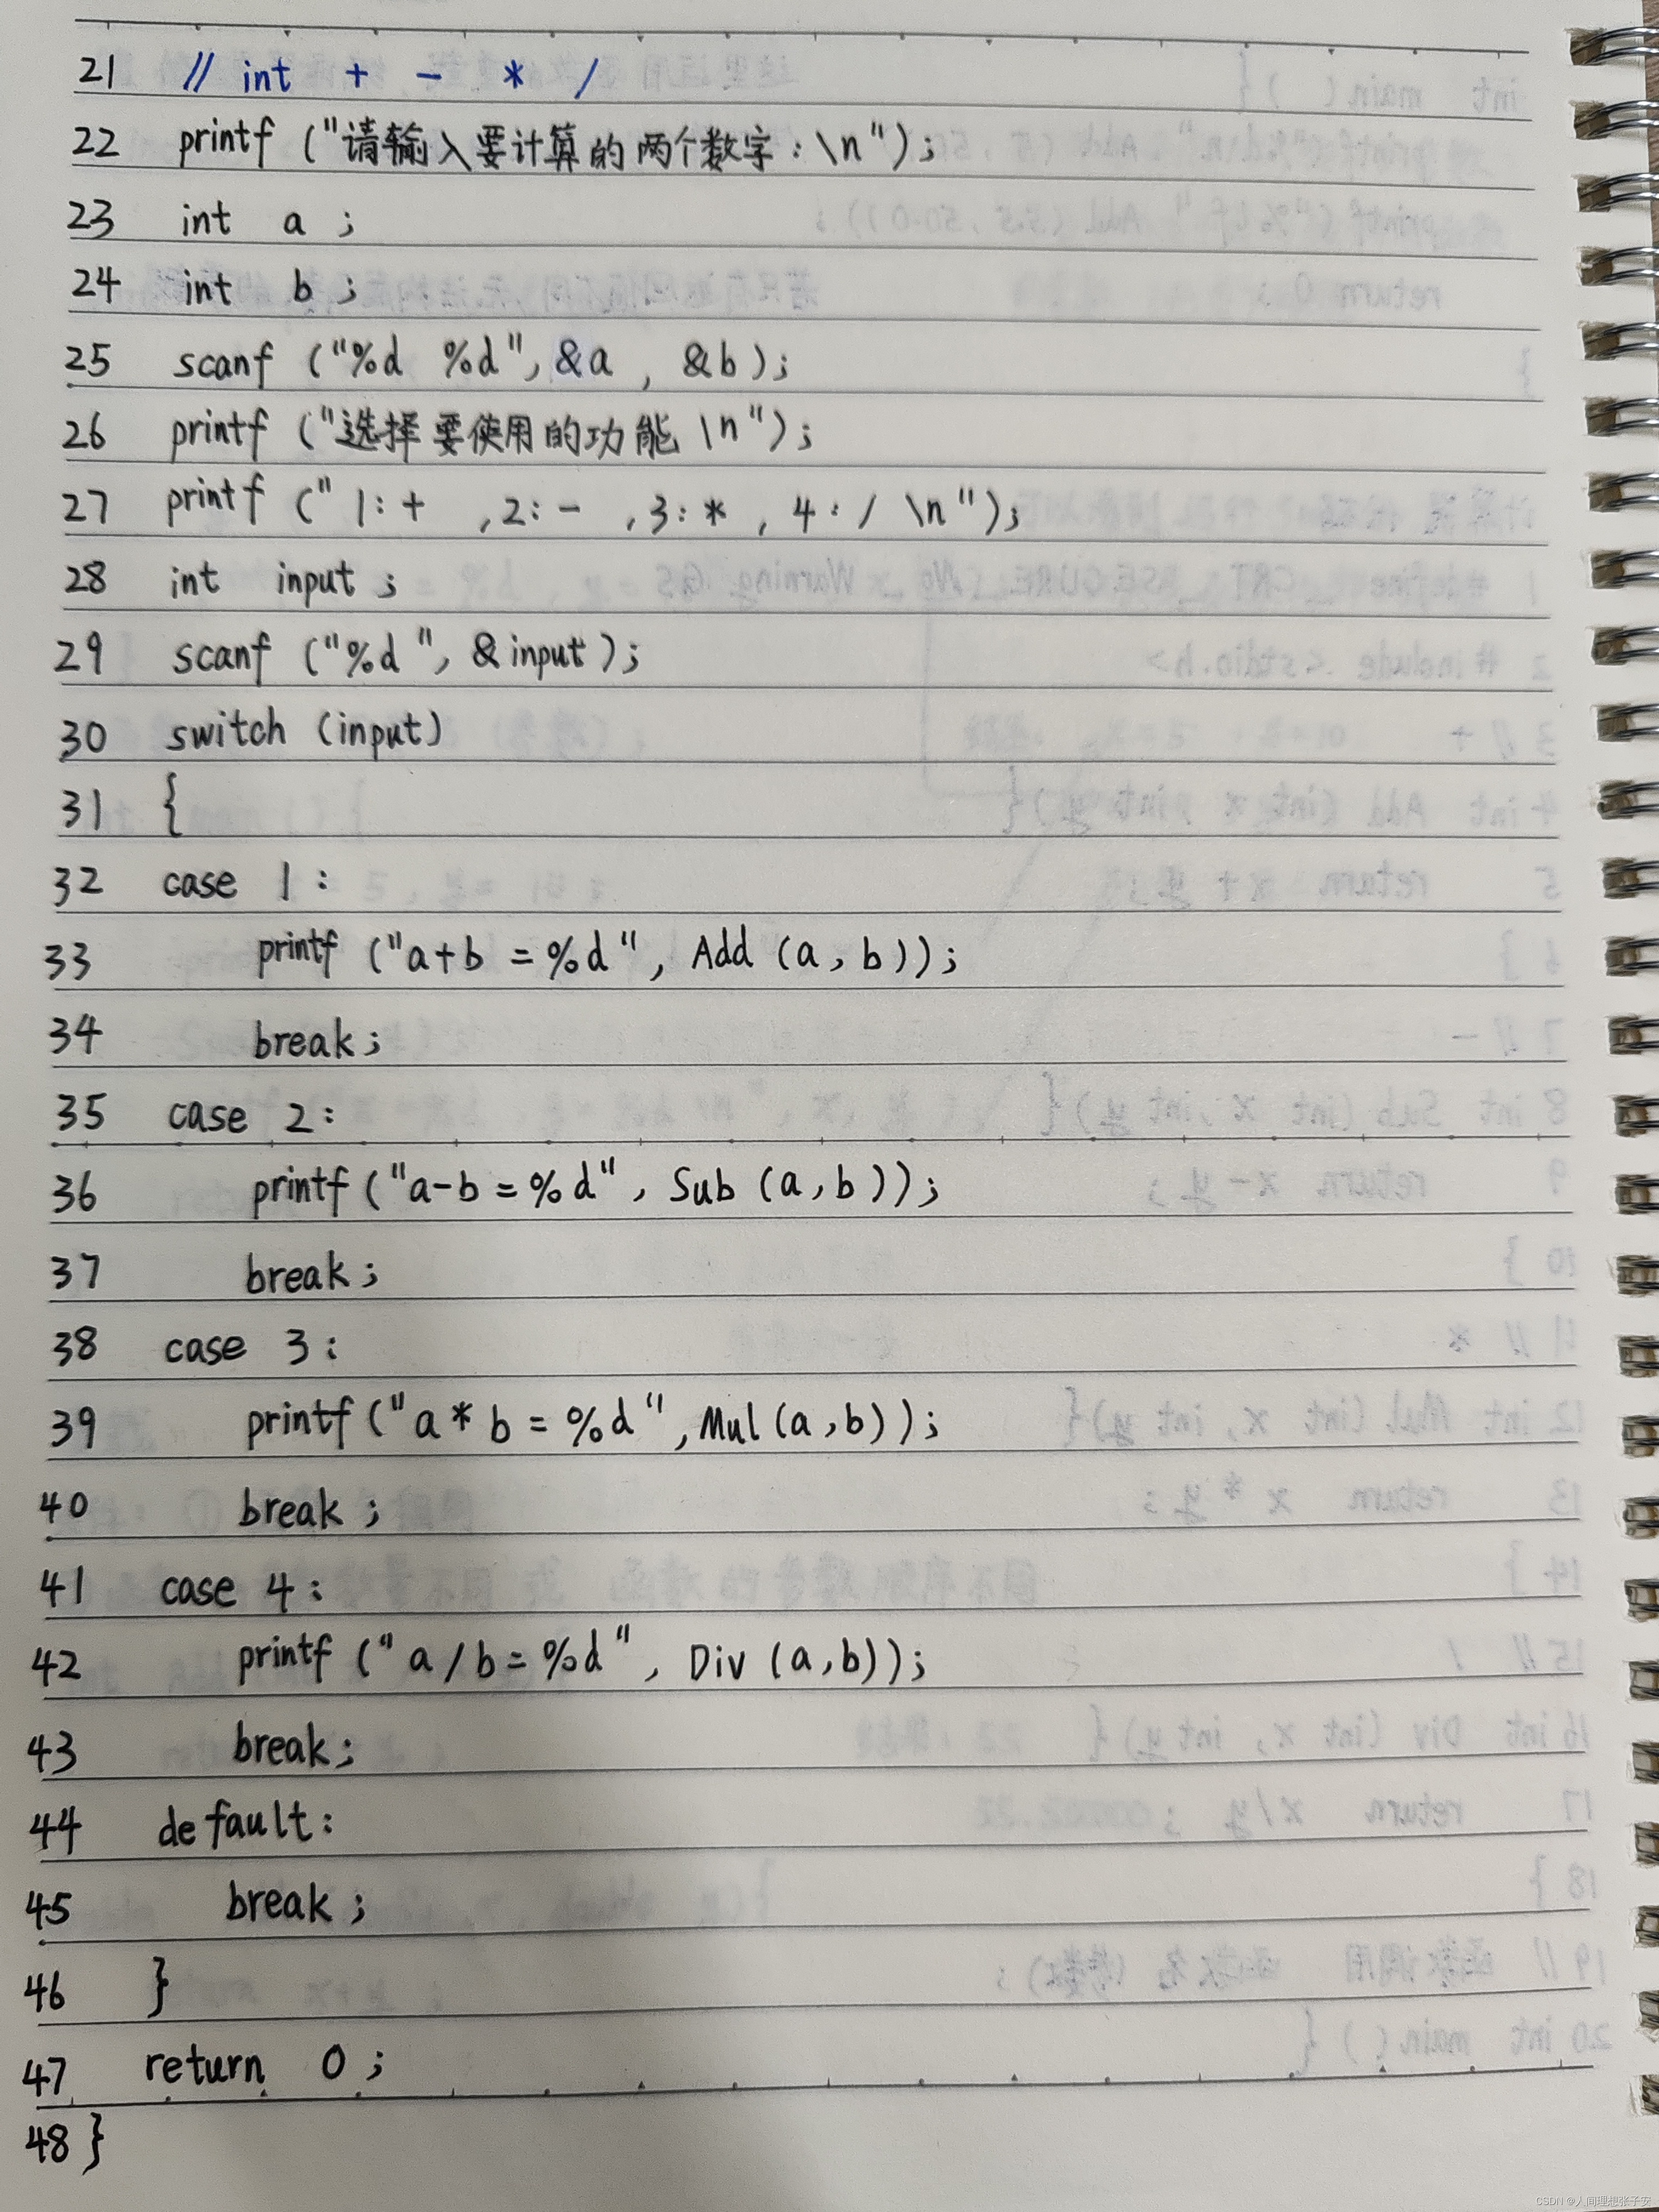 21 // int + - * /
22 printf ("请输入要计算的两个数字：\n");
23 int a ;
24 int b ;
25 scanf ("%d %d", &a , &b );
26 printf ("选择要使用的功能 \n");
27 printf (" 1: + ,2: - ,3: * , 4 : / \n");
28 int input ;
29 scanf ("%d ", & input );
30 switch (input)
31 {
32 case 1 :
33 printf ("a+b =%d", Add (a, b));
34 break ;
35 case 2:
36 printf ("a-b =%d", Sub (a,b ));
37 break ;
38 case 3 :
39 printf ("a * b = %d", Mul (a ,b) );
40 break ;
41 case 4 :
42 printf (" a / b = %d", Div (a,b));
43 break ;
44 default:
45 break ;
46 }
47 return 0 ;
48 }
CSDN @人间理想张子安